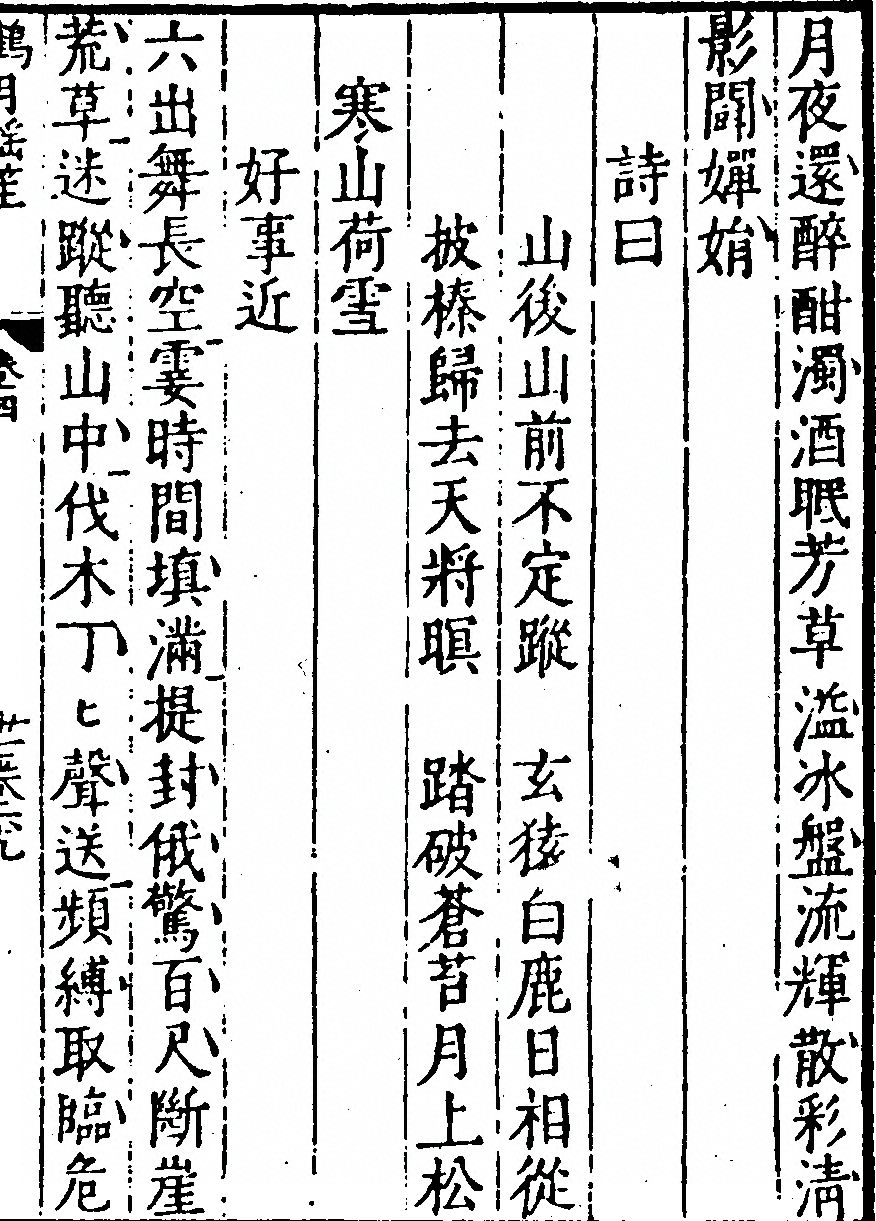 月夜還醉酣濁酒眠芳草溢冰盤流輝散彩淸
影鬭嬋娟
詩曰
山後山前不定蹤　玄猿白鹿日相從
披榛歸去天將暝　踏破蒼苔月上松
寒山荷雪
好事近
六出舞長空霎時間填滿提封俄驚百尺斷崖
荒草迷蹤聽山中伐木丁〻聲送頻縛取臨危
鶴月瑤笙
卷四